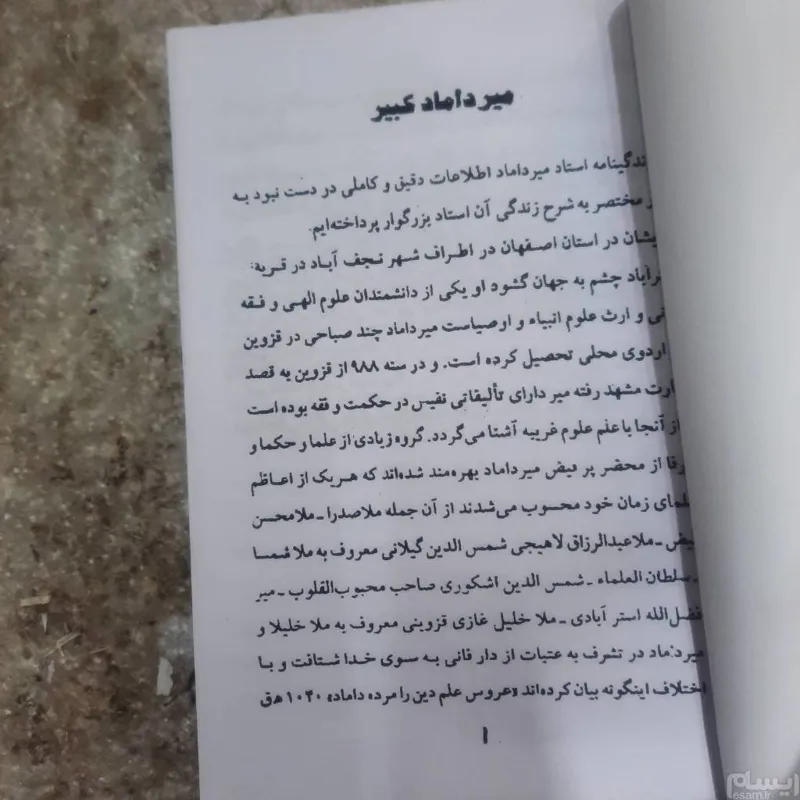 میرداماد کبیر
ندگینامه استاد میرداماد اطلاعات دقیق و کاملی در دست نبود به
ر مختصر به شرح زندگی آن استاد بزرگوار پرداخته‌ایم.
یشان در استان اصفهان در اطراف شهر نجف آباد در قریه:
رآباد چشم به جهان گشود او یکی از دانشمندان علوم الهی و فقه
نی و ارث علوم انبیاء و اوصیاست میرداماد چند صباحی در قزوین
اردوی محلی تحصیل کرده است. و در سنه ۹۸۸ از قزوین به قصد
ارت مشهد رفته میر دارای تألیقاتی نفیس در حکمت و فقه بوده است
از آنجا با علم علوم غریبه آشنا می‌گردد. گروه زیادی از علما و حکما و
رفا از محضر پر فیض میرداماد بهره‌مند شده‌اند که هریک از اعاظم
لمای زمان خود محسوب می‌شدند از آن جمله ملاصدرا ـ ملامحسن
یض ـ ملاعبدالرزاق لاهیجی شمس الدین گیلانی معروف به ملا شمسا
ـ سلطان العلماء ـ شمس الدین اشکوری صاحب محبوب‌القلوب ـ میر
فضل‌الله استر آبادی ـ ملا خلیل غازی قزوینی معروف به ملا خلیلا و
میرداماد در تشرف به عتبات از دار فانی به سوی خدا شتافت و با
اختلاف اینگونه بیان کرده‌اند «عروس علم دین را مرده داماد» ۱۰۴۰ ه‍ ق
۱
ایسام
esam.ir